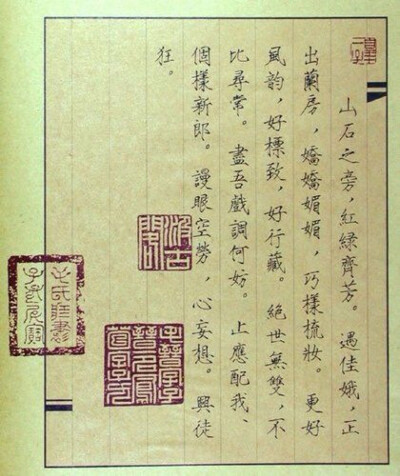 山石之旁，紅綠齊芳。遇佳娥，正
出蘭房，嬌嬌媚媚，巧樣梳妝。更好
風韵，好標致，好行藏。絕世無雙，不
比尋常。盡吾戲調何妨。止應配我、
個樣新郎。謾眼空勞，心妄想。興徒
狂。
汲古閣
毛氏藏書
子孫永寶